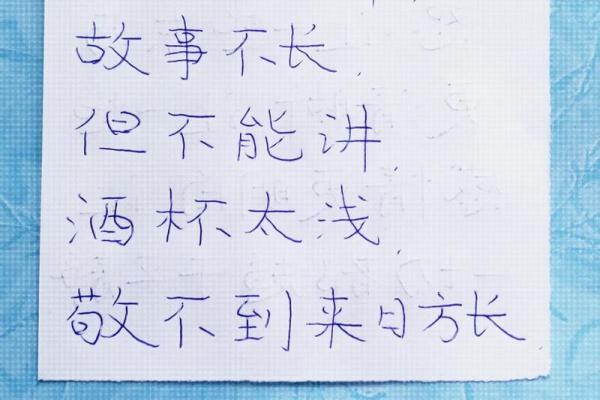 故事不长,
但不能讲,
酒杯太浅,
敬不到来日方长